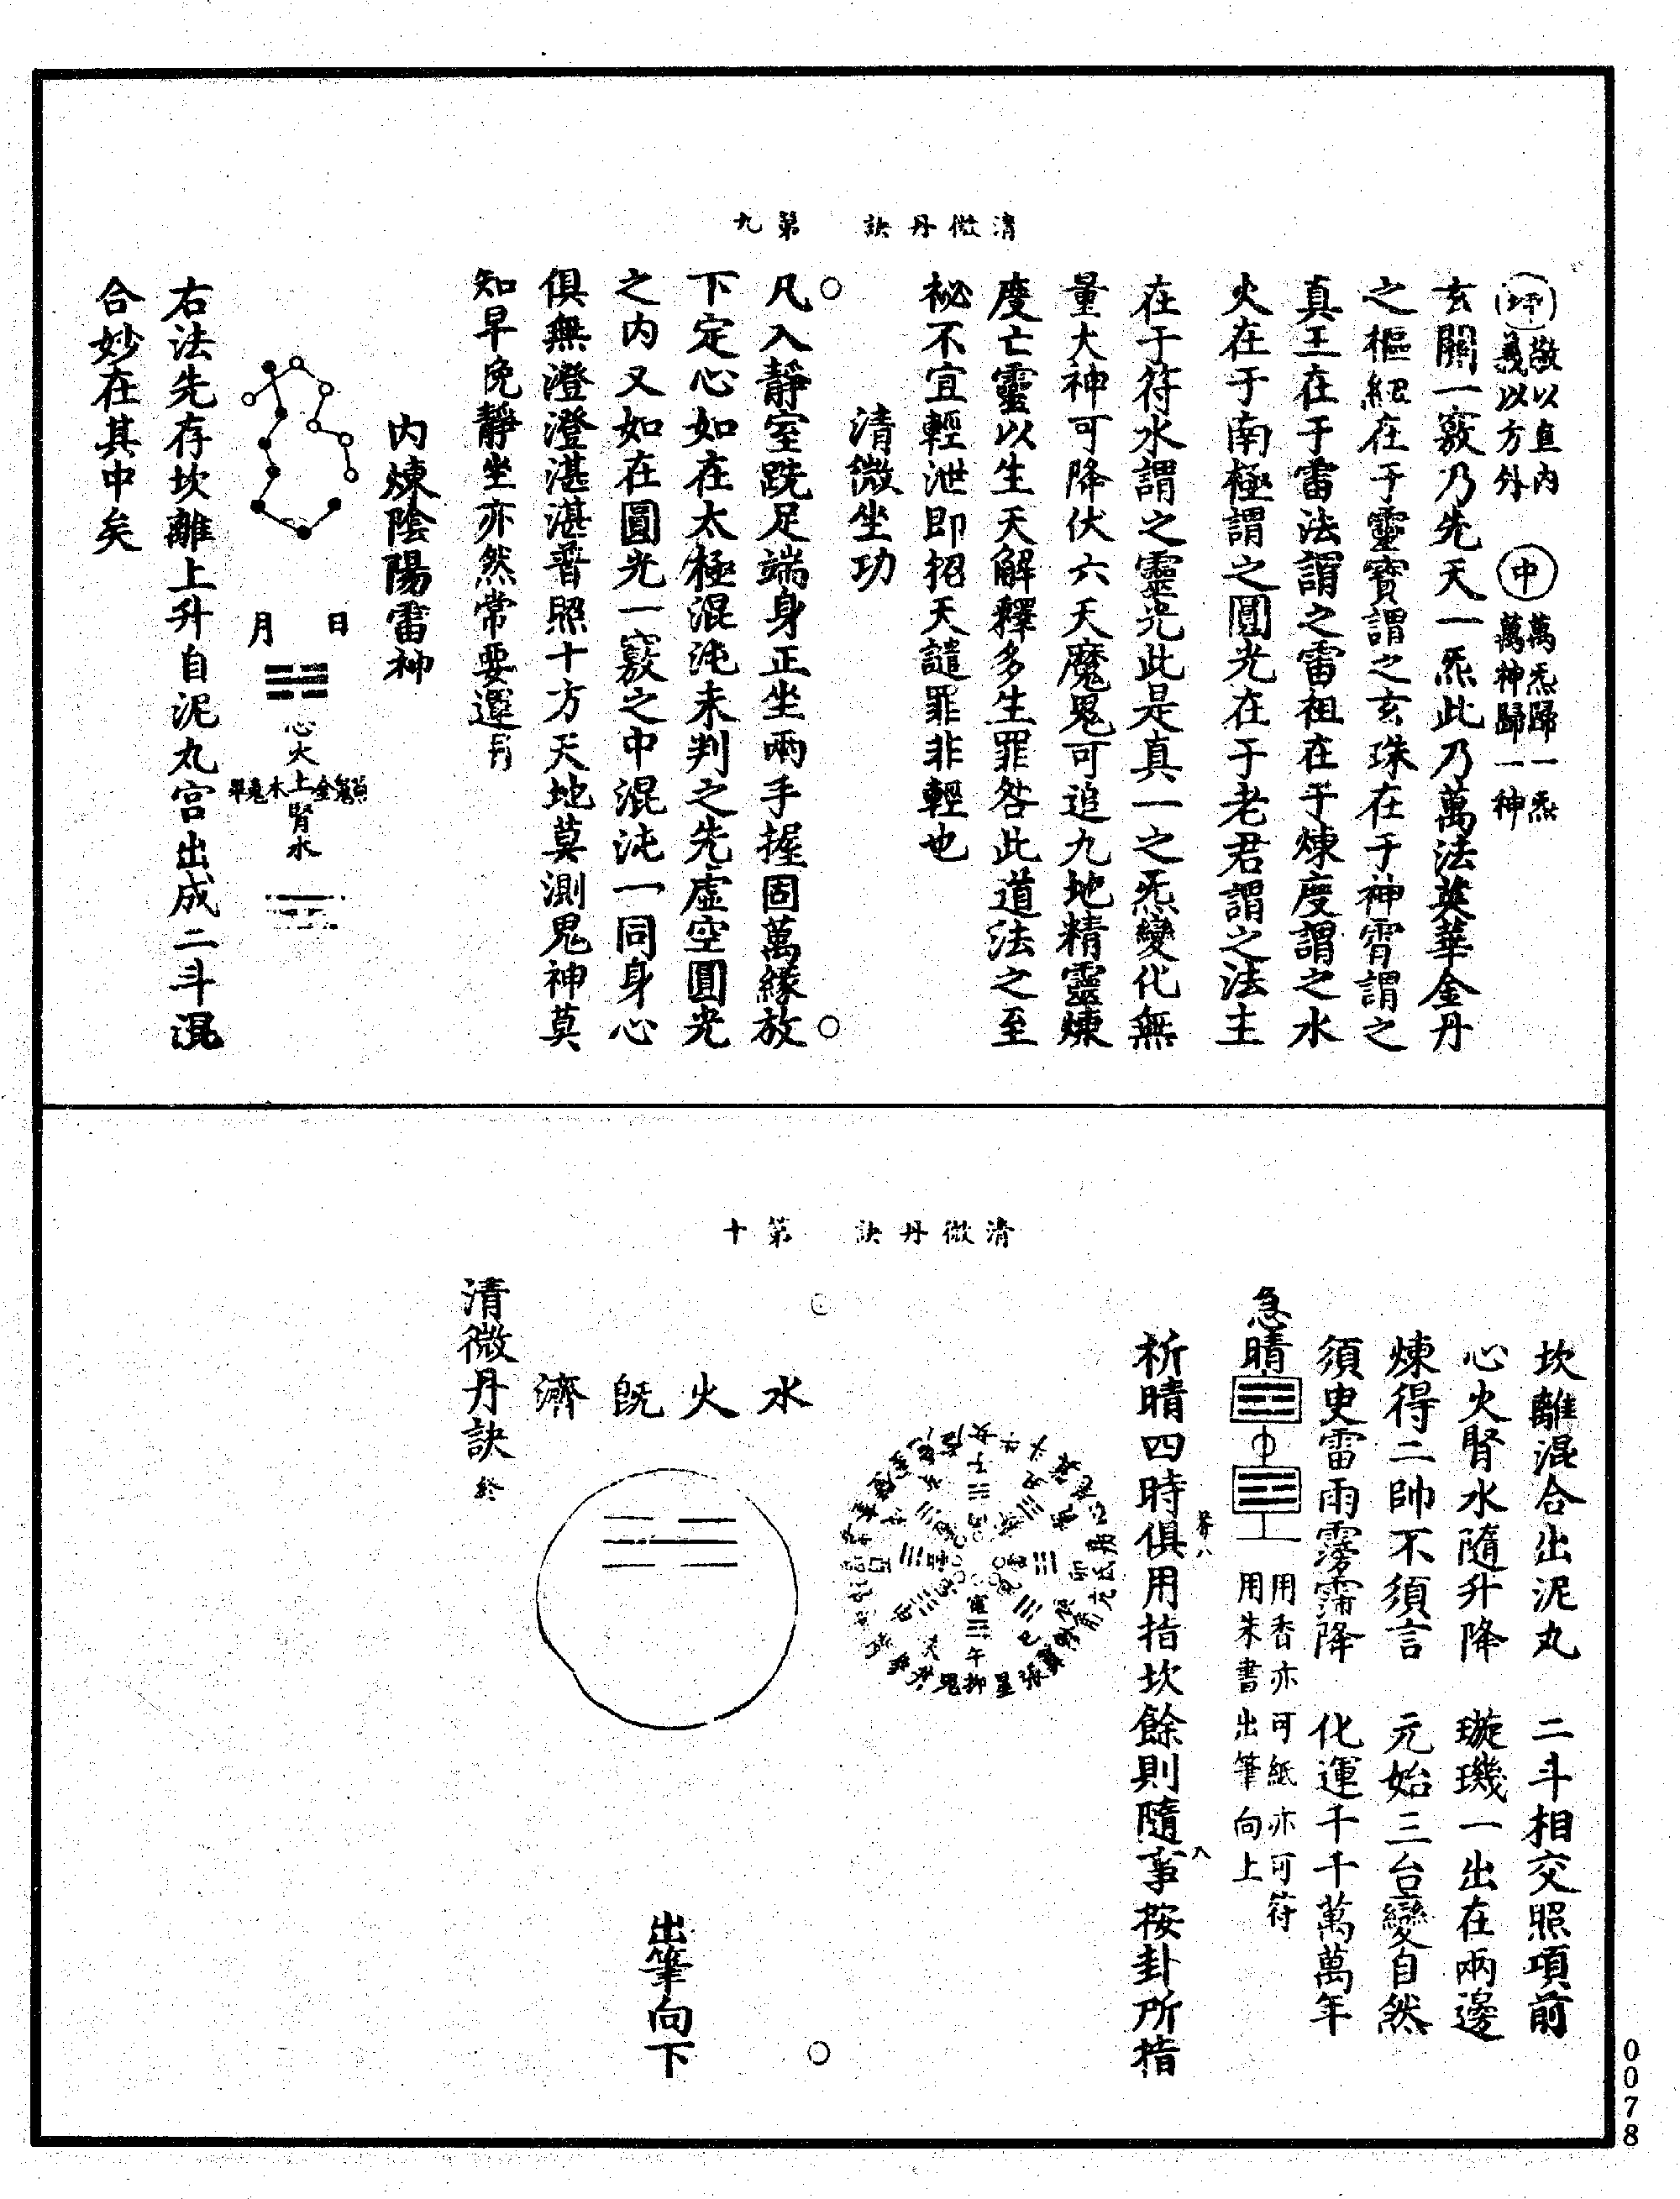 清微丹訣 第九
坤 敬以直內 義以方外 中 萬炁歸一炁 萬神歸一神
玄關一竅乃先天一炁此乃萬法英華金丹
之樞紐在于靈寶謂之玄珠在于神霄謂之
真王在于雷法謂之雷祖在于煉度謂之水
火在于南極謂之圓光在于老君謂之法主
在于符水謂之靈光此是真一之炁變化無
量大神可降伏六天魔鬼可追九地精靈煉
度亡靈以生天解釋多生罪咎此道法之至
祕不宜輕泄即招天譴罪非輕也
清微坐功
凡入靜室跣足端身正坐兩手握固萬緣放
下定心如在太極混沌未判之先虛空圓光
之內又如在圓光一竅之中混沌一同身心
俱無澄澄湛湛普照十方天地莫測鬼神莫
知早晚靜坐亦然常要還
內煉陰陽雷神
日
月
心火上腎水
右法先存坎離上升自泥丸宮出成二斗混
合妙在其中矣
清微丹訣 第十
坎離混合出泥丸 二斗相交照項前
心火腎水隨升降 璇璣一出在兩邊
煉得二帥不須言 元始三台變自然
須臾雷雨霶霈降 化運千千萬萬年
急晴
用香亦可紙亦可符
用朱書出筆向上
祈晴四時俱用指坎餘則隨事按卦所指
水火既濟
出筆向下
清微丹訣終
0078